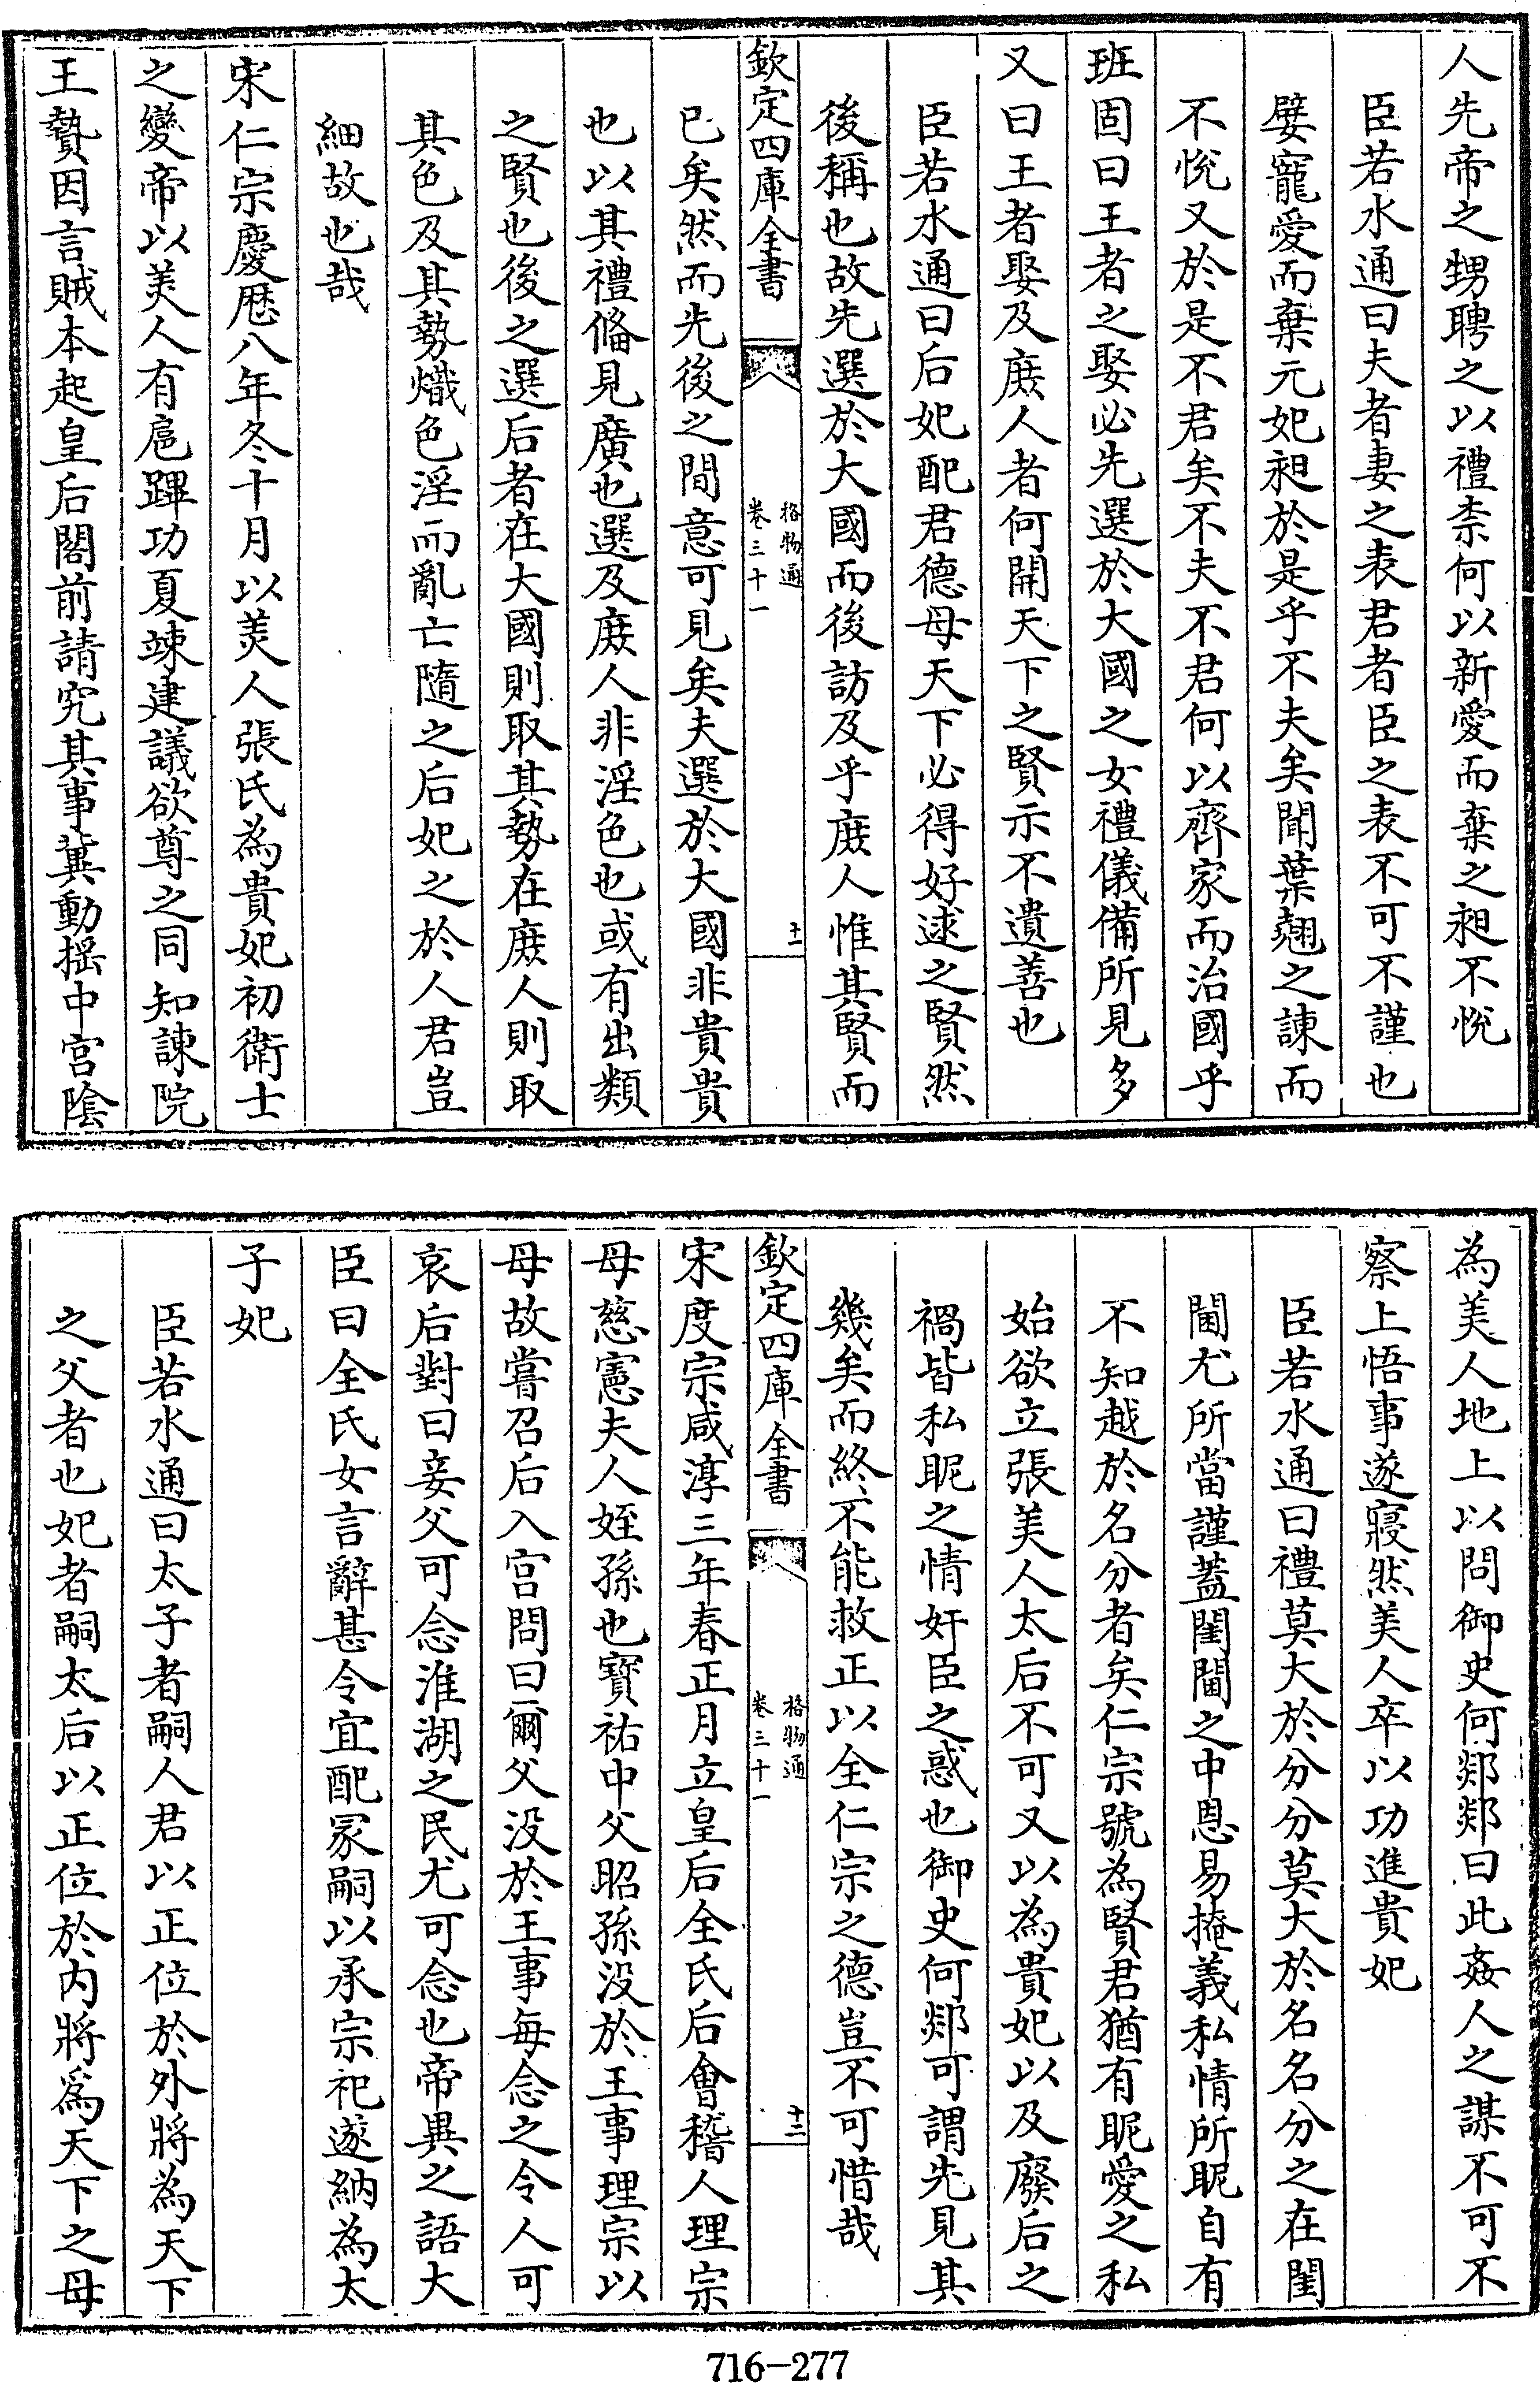 人先帝之甥聘之以禮柰何以新愛而棄之昶不悅
臣若水通曰夫者妻之表君者臣之表不可不謹也
嬖寵愛而棄元妃昶於是乎不夫矣聞葉翹之諫而
不悅又於是不君矣不夫不君何以齊家而治國乎
班固曰王者之娶必先選於大國之女禮儀備所見多
又曰王者娶及庶人者何開天下之賢示不遺善也
臣若水通曰后妃配君德母天下必得好逑之賢然
後稱也故先選於大國而後訪及乎庶人惟其賢而
欽定四庫全書
格物通
卷三十一
十一
已矣然而先後之間意可見矣夫選於大國非貴貴
也以其禮俻見廣也選及庶人非淫色也或有出類
之賢也後之選后者在大國則取其勢在庶人則取
其色及其勢熾色淫而亂亡隨之后妃之於人君豈
細故也哉
宋仁宗慶厯八年冬十月以美人張氏為貴妃初衛士
之變帝以美人有扈蹕功夏竦建議欲尊之同知諫院
王贄因言賊本起皇后閣前請究其事冀動揺中宫隂
為美人地上以問御史何郯郯曰此姦人之謀不可不
察上悟事遂寢然美人卒以功進貴妃
臣若水通曰禮莫大於分分莫大於名名分之在閨
閫尤所當謹蓋閨閫之中恩易掩義私情所眤自有
不知越於名分者矣仁宗號為賢君猶有眤愛之私
始欲立張美人太后不可又以為貴妃以及廢后之
禍皆私眤之情奸臣之惑也御史何郯可謂先見其
幾矣而終不能救正以全仁宗之德豈不可惜哉
欽定四庫全書
格物通
卷三十一
十二
宋度宗咸淳三年春正月立皇后全氏后會稽人理宗
母慈憲夫人姪孫也寳祐中父昭孫没於王事理宗以
母故嘗召后入宫問曰爾父没於王事每念之令人可
哀后對曰妾父可念淮湖之民尤可念也帝異之語大
臣曰全氏女言辭甚令宜配冢嗣以承宗祀遂納為太
子妃
臣若水通曰太子者嗣人君以正位於外將為天下
之父者也妃者嗣太后以正位於内將爲天下之母
716-277